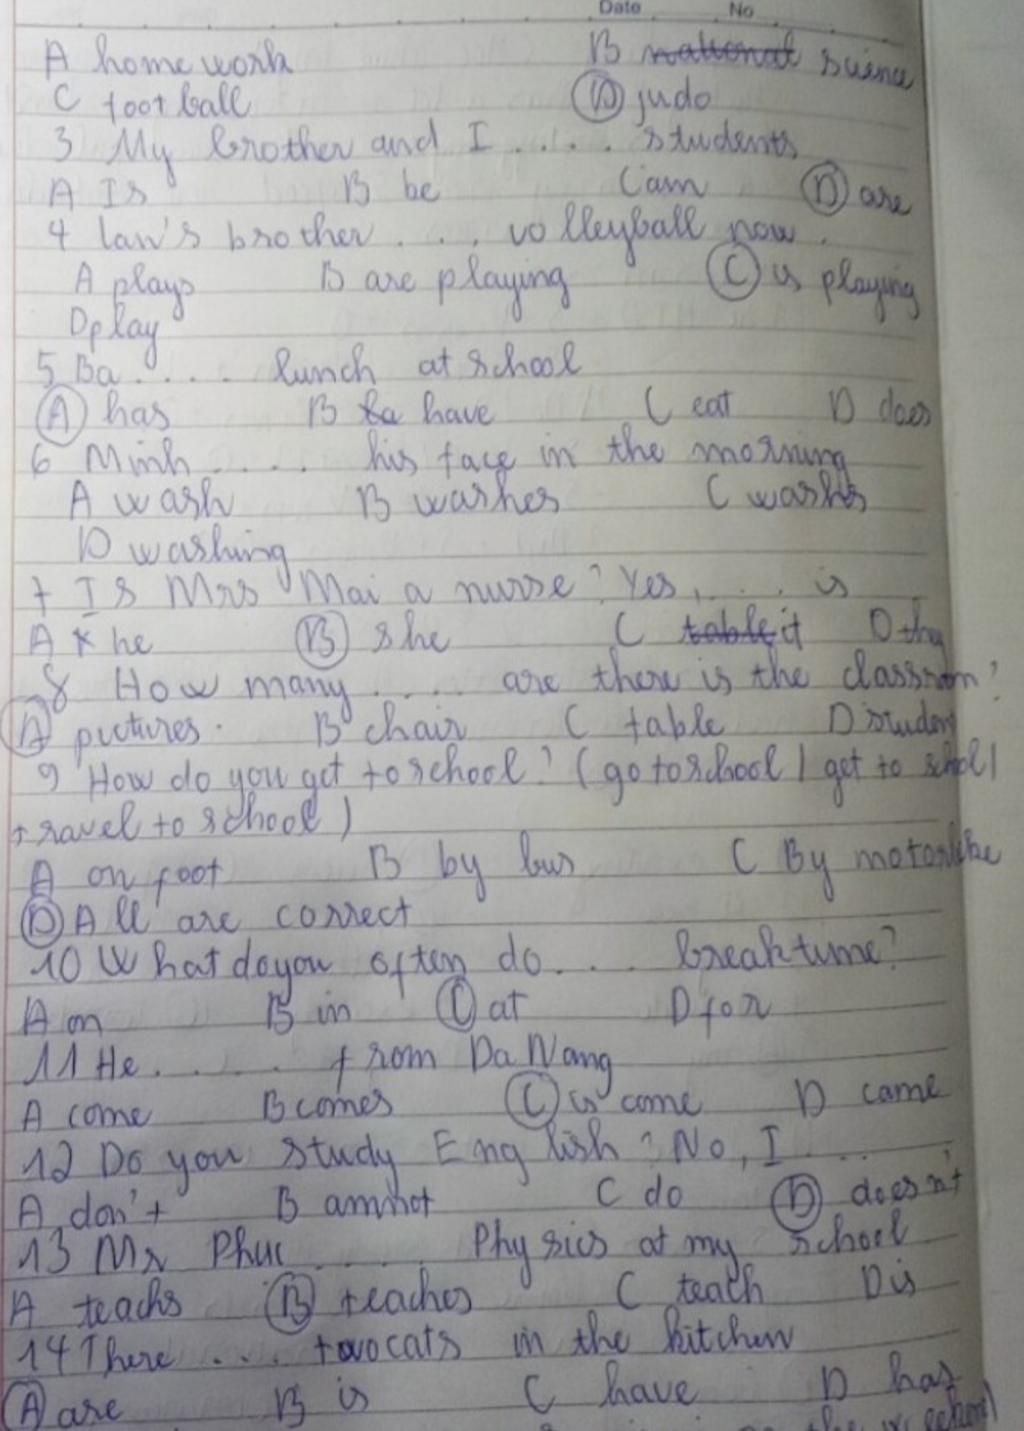 Date No
A home work B national science
C foot ball D judo
3 My brother and I .... students
A Is B be C am D are
4 lan's brother .... volleyball now.
A plays B are playing C is playing
D play
5 Ba .... lunch at school
A has B have C eat D does
6 Minh .... his face in the morning
A wash B washes C washs
D washing
7 Is Mrs Mai a nurse? Yes, .... is
A he B she C table it D they
8 How many .... are there is the classroom?
A pictures. B chair C table D student
9 How do you get to school? (go to school / get to school /
travel to school)
A on foot B by bus C By motorbike
D All are correct
10 What do you often do .... breaktime?
A on B in C at D for
11 He ...... from Da Nang
A come B comes C is come D came
12 Do you study English? No, I ....
A don't B am not C do D doesn't
13 Mr Phuc ..... Physics at my school
A teachs B teaches C teach D is
14 There .... two cats in the kitchen
A are B is C have D has